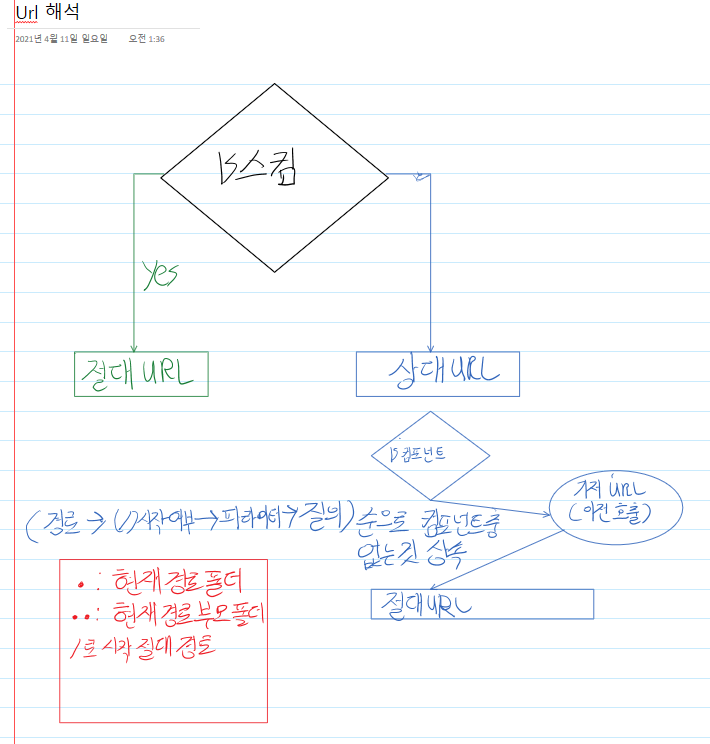 Url 해석
2021년 4월 11일 일요일 오전 1:36
is스킴
yes
절대 URL
상대 URL
is 컴포넌트
기저 URL
(이전 호출)
(경로 → (/)시작여부 → 파라미터 → 질의) 순으로 컴포넌트중
없는것 상속
• : 현재 경로 폴더
•• : 현재 경로 부모폴더
/로 시작 절대 경로
절대 URL